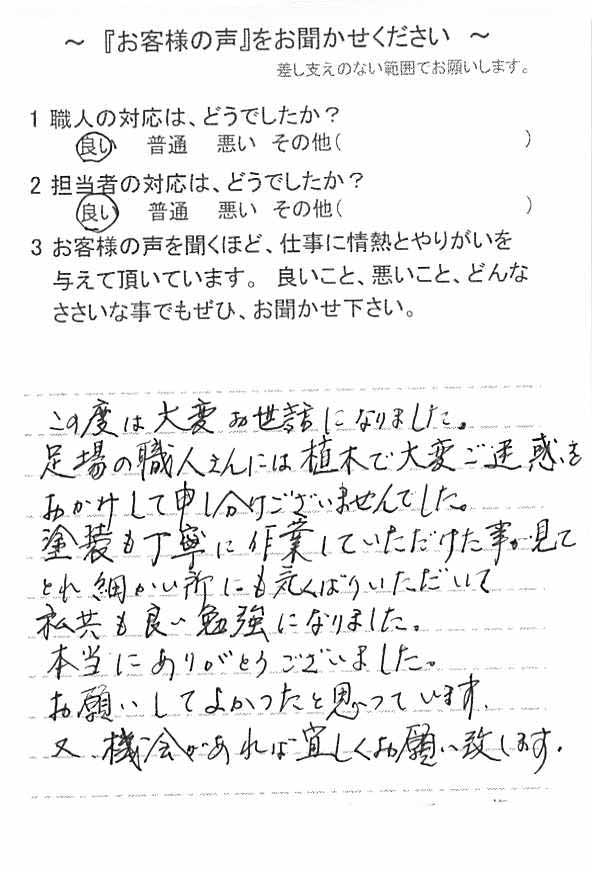 ～ 『お客様の声』をお聞かせください ～
差し支えのない範囲でお願いします。
1 職人の対応は、どうでしたか？
良い 普通 悪い その他( )
2 担当者の対応は、どうでしたか？
良い 普通 悪い その他( )
3 お客様の声を聞くほど、仕事に情熱とやりがいを
与えて頂いています。 良いこと、悪いこと、どんな
ささいな事でもぜひ、お聞かせ下さい。
この度は大変お世話になりました。
足場の職人さんには植木で大変ご迷惑を
おかけして申し分けございませんでした。
塗装も丁寧に作業していただけた事が見て
とれ細かい所にも気くばりいただいて
私共も良い勉強になりました。
本当にありがとうございました。
お願いしてよかったと思っています.
又、機会があれば宜しくお願い致します.